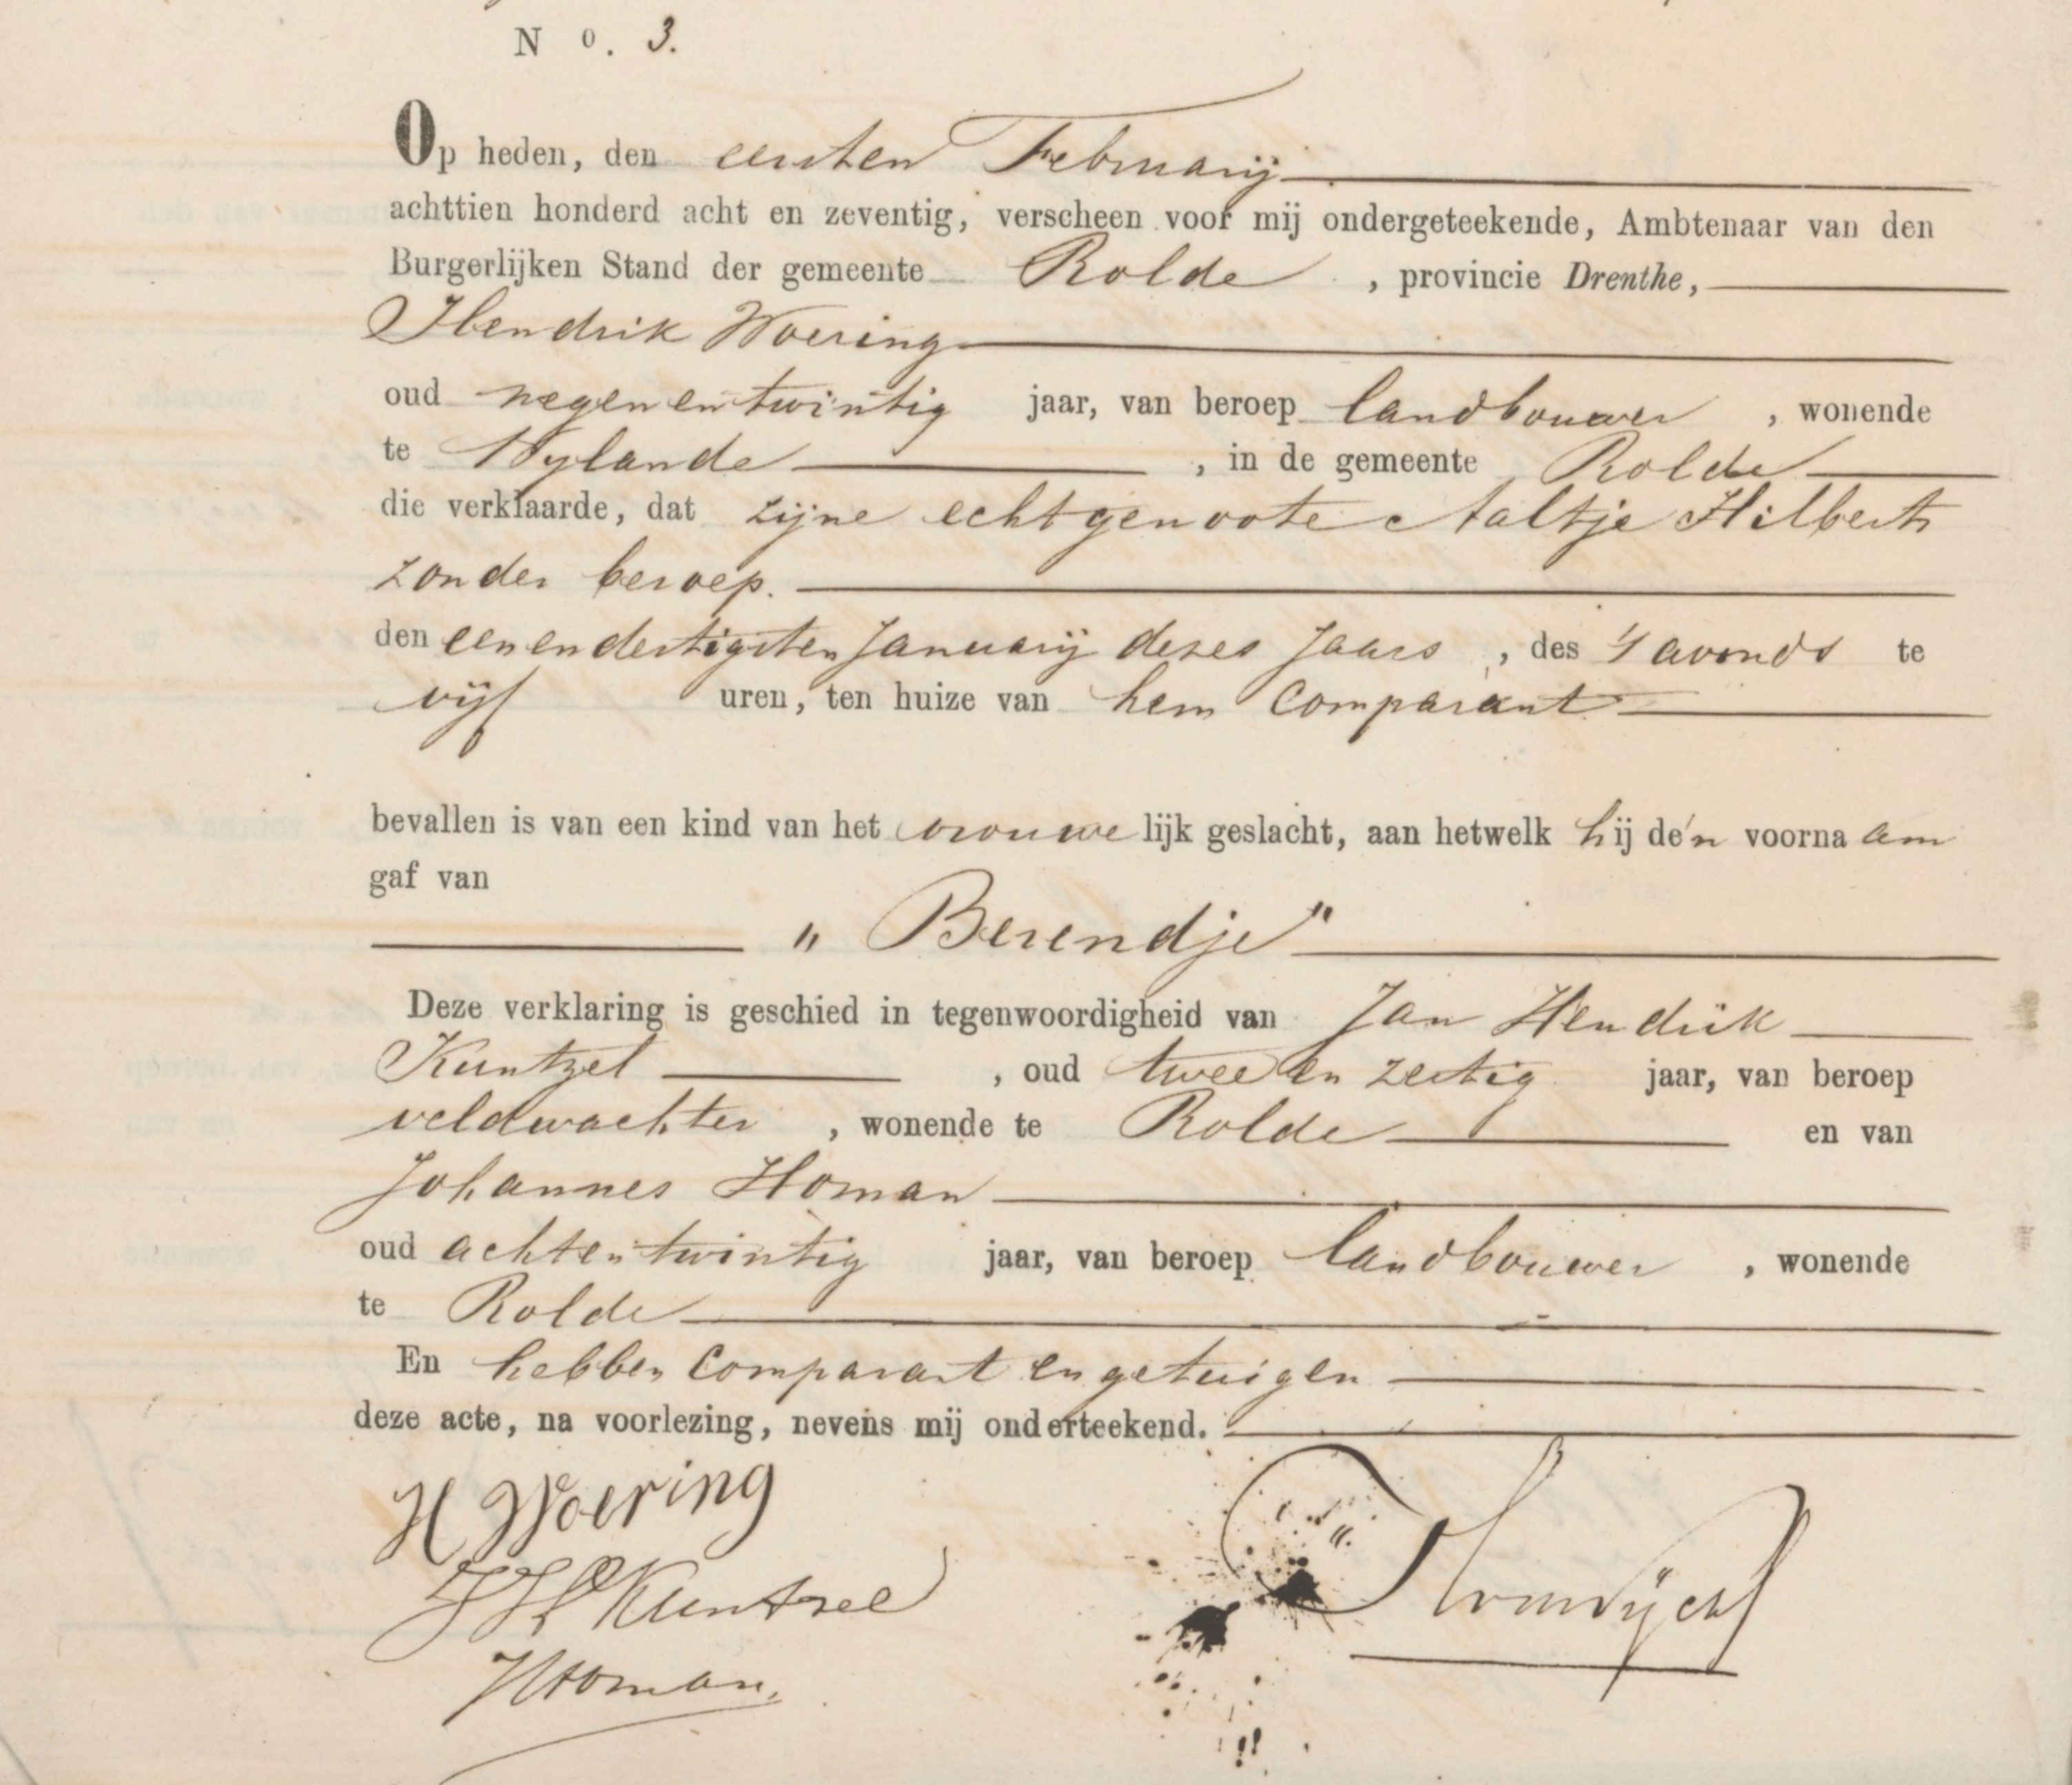 No. 3.
Op heden, den eersten Februarij
achttien honderd acht en zeventig, verscheen voor mij ondergeteekende, Ambtenaar van den
Burgerlijken Stand der gemeente Rolde, provincie Drenthe,
Hendrik Woering
oud negenentwintig jaar, van beroep landbouwer, wonende
te Nylande, in de gemeente Rolde
die verklaarde, dat zijne echtgenoote Aaltje Hilberts
zonder beroep.
den eenendertigsten Januarij dezes jaars, des 's avonds te
vijf uren, ten huize van hem Comparant
bevallen is van een kind van het vrouwelijk geslacht, aan hetwelk hij de'n voornaam
gaf van
" Berendje"
Deze verklaring is geschied in tegenwoordigheid van Jan Hendrik
Kuntzel, oud twee en zestig jaar, van beroep
veldwachter, wonende te Rolde en van
Johannes Homan
oud achtentwintig jaar, van beroep landbouwer, wonende
te Rolde
En hebben Comparant en getuigen
deze acte, na voorlezing, nevens mij onderteekend.
H Woering
JH Kuntzel
JHoman.